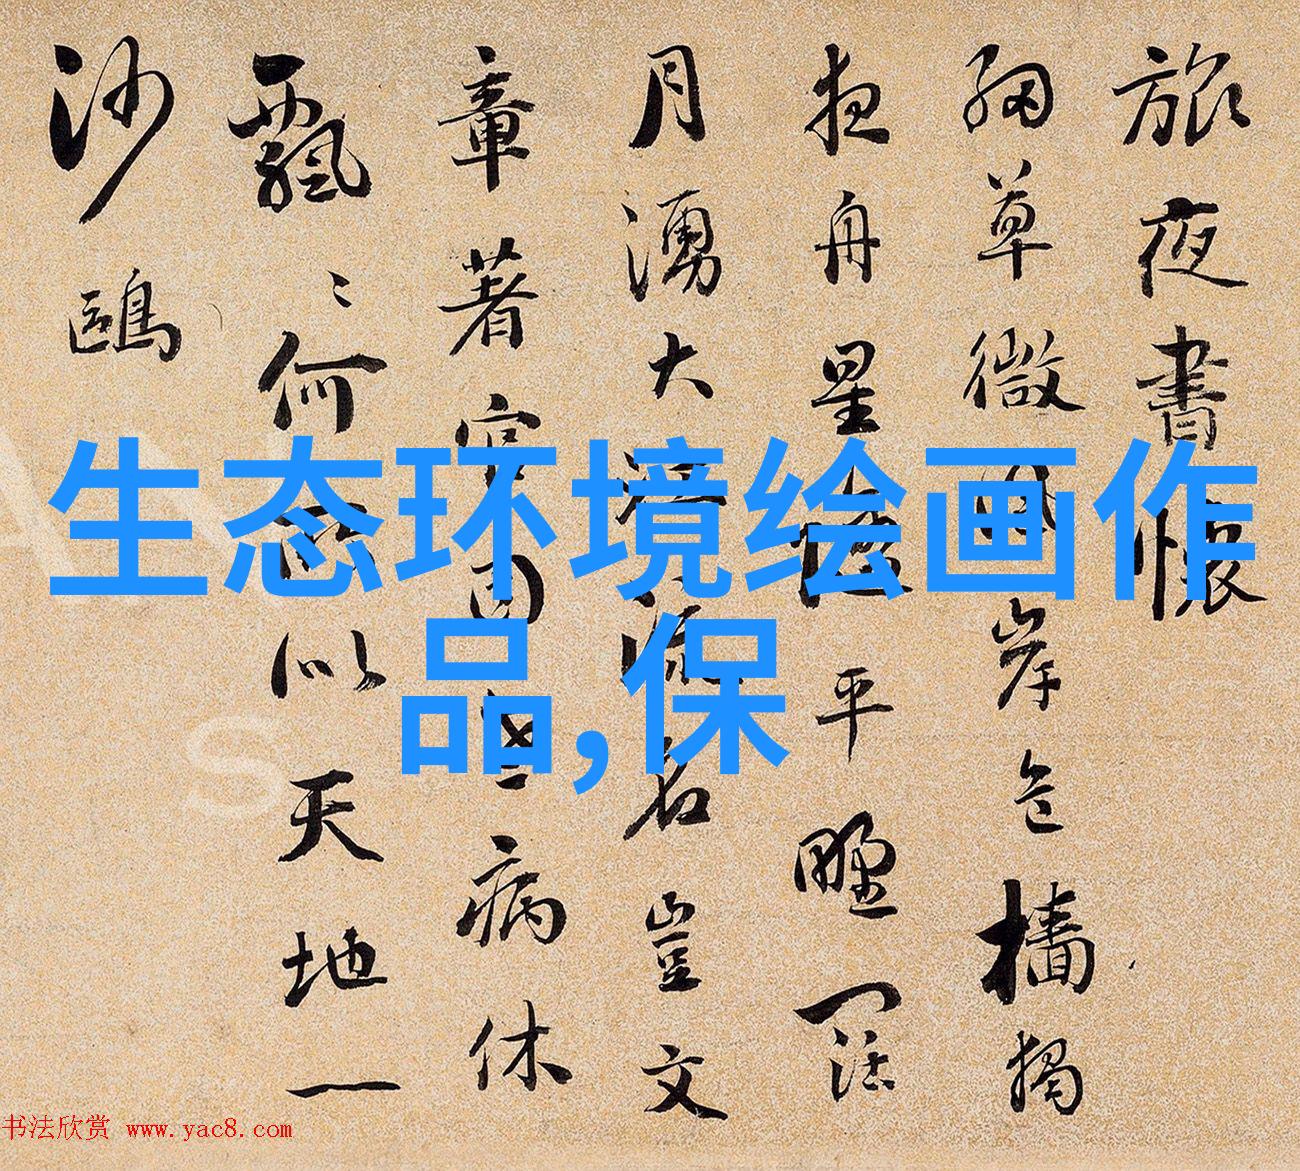 旅夜書懷
細草微風岸危檣獨
夜舟星垂平野闊
月湧大江流名豈文
章著官因老病休
飄〻何所似天地一
沙鷗
生态环境绘画作
品,保
书法欣赏 www.yac8.com